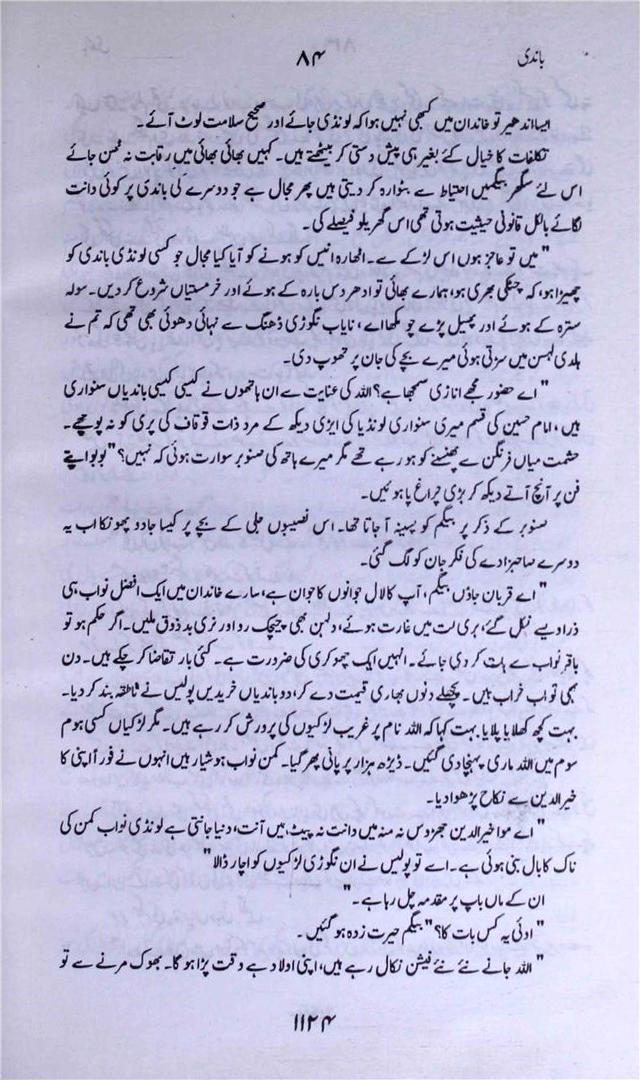 باندی
۸۴
ایسا اندھیر تو خاندان میں کبھی نہیں ہوا کہ لونڈی جائے اور صحیح سلامت لوٹ آئے۔
تکلفات کا خیال کئے بغیر ہی پیش دستی کر بیٹھتے ہیں۔ کہیں بھائی بھائی میں رقابت نہ ٹھن جائے
اس لئے سگھڑ بیگمیں احتیاط سے بٹوارہ کر دیتی ہیں پھر مجال ہے جو دوسرے کی باندی پر کوئی دانت
لگائے بالکل قانونی حیثیت ہوتی تھی اس گھریلو فیصلے کی۔
" میں تو عاجز ہوں اس لڑکے سے۔ اٹھارہ انیس کو ہونے کو آیا کیا مجال جو کسی لونڈی باندی کو
چھیڑا ہو، کہ چٹکی بھری ہو، ہمارے بھائی تو ادھر دس بارہ کے ہوئے اور خرمستیاں شروع کر دیں۔ سولہ
سترہ کے ہوئے اور پھیل پڑے جو مکھا اے، نایاب نگوڑی ڈھنگ سے نہائی دھوئی بھی تھی کہ تم نے
ہلدی لہسن میں سڑتی ہوئی میرے بچے کی جان پر تھوپ دی۔
" اے حضور مجھے اناڑی سمجھا ہے؟ اللہ کی عنایت سے ان ہاتھوں نے کیسی کیسی باندیاں سنواری
ہیں، امام حسین کی قسم میری سنواری لونڈیا کی ایڑی دیکھ کے مرد ذات قوقاف کی پری کو نہ پوچھے۔
حشمت میاں فرنگن سے پھنسنے کو ہو رہے تھے مگر میرے ہاتھ کی صنوبر سوارت ہوئی کہ نہیں؟" بوبو اپنے
فن پر آنچ آتے دیکھ کر بڑی چراغ پا ہوئیں۔
صنوبر کے ذکر پر بیگم کو پسینہ آ جاتا تھا۔ اس نصیبوں جلی کے بچے پر کیسا جادو پھونکا اب یہ
دوسرے صاحبزادے کی فکر جان کو لگ گئی۔
" اے قربان جاؤں بیگم، آپ کا لال جوانوں کا جوان ہے، سارے خاندان میں ایک افضل نواب ہی
ذرا ویسے نکل گئے، بری لت میں غارت ہوئے، دلہن بھی چیچک رو اور نری بد ذوق ملیں۔ اگر حکم ہو تو
باقر نواب سے بات کر دی جائے۔ انہیں ایک چھوکری کی ضرورت ہے۔ کئی بار تقاضا کر چکے ہیں۔ دن
بھی تو اب خراب ہیں۔ پچھلے دنوں بھاری قیمت دے کر دو باندیاں خریدیں پولیس نے ناطقہ بند کر دیا۔
بہت کچھ کھلایا پلایا بہت کہا کہ اللہ نام پر غریب لڑکیوں کی پرورش کر رہے ہیں۔ مگر لڑکیاں کسی ہوم
سوم میں اللہ ماری پہنچا دی گئیں۔ ڈیڑھ ہزار پر پانی پھر گیا۔ کمن نواب ہوشیار ہیں انہوں نے فوراً اپنی کا
خیر الدین سے نکاح پڑھوا دیا۔
" اے موا خیر الدین جھڑوس نہ منہ میں دانت نہ پیٹ میں آنت، دنیا جانتی ہے لونڈی نواب کمن کی
ناک کا بال بنی ہوئی ہے۔ اے تو پولیس نے ان نگوڑی لڑکیوں کو اچار ڈالا"
ان کے ماں باپ پر مقدمہ چل رہا ہے۔"
" اوئی یہ کس بات کا؟" بیگم حیرت زدہ ہو گئیں۔
" اللہ جانے نئے نئے فیشن نکال رہے ہیں، اپنی اولاد ہے وقت پڑا ہو گا۔ بھوک مرنے سے تو
۱۱۲۴